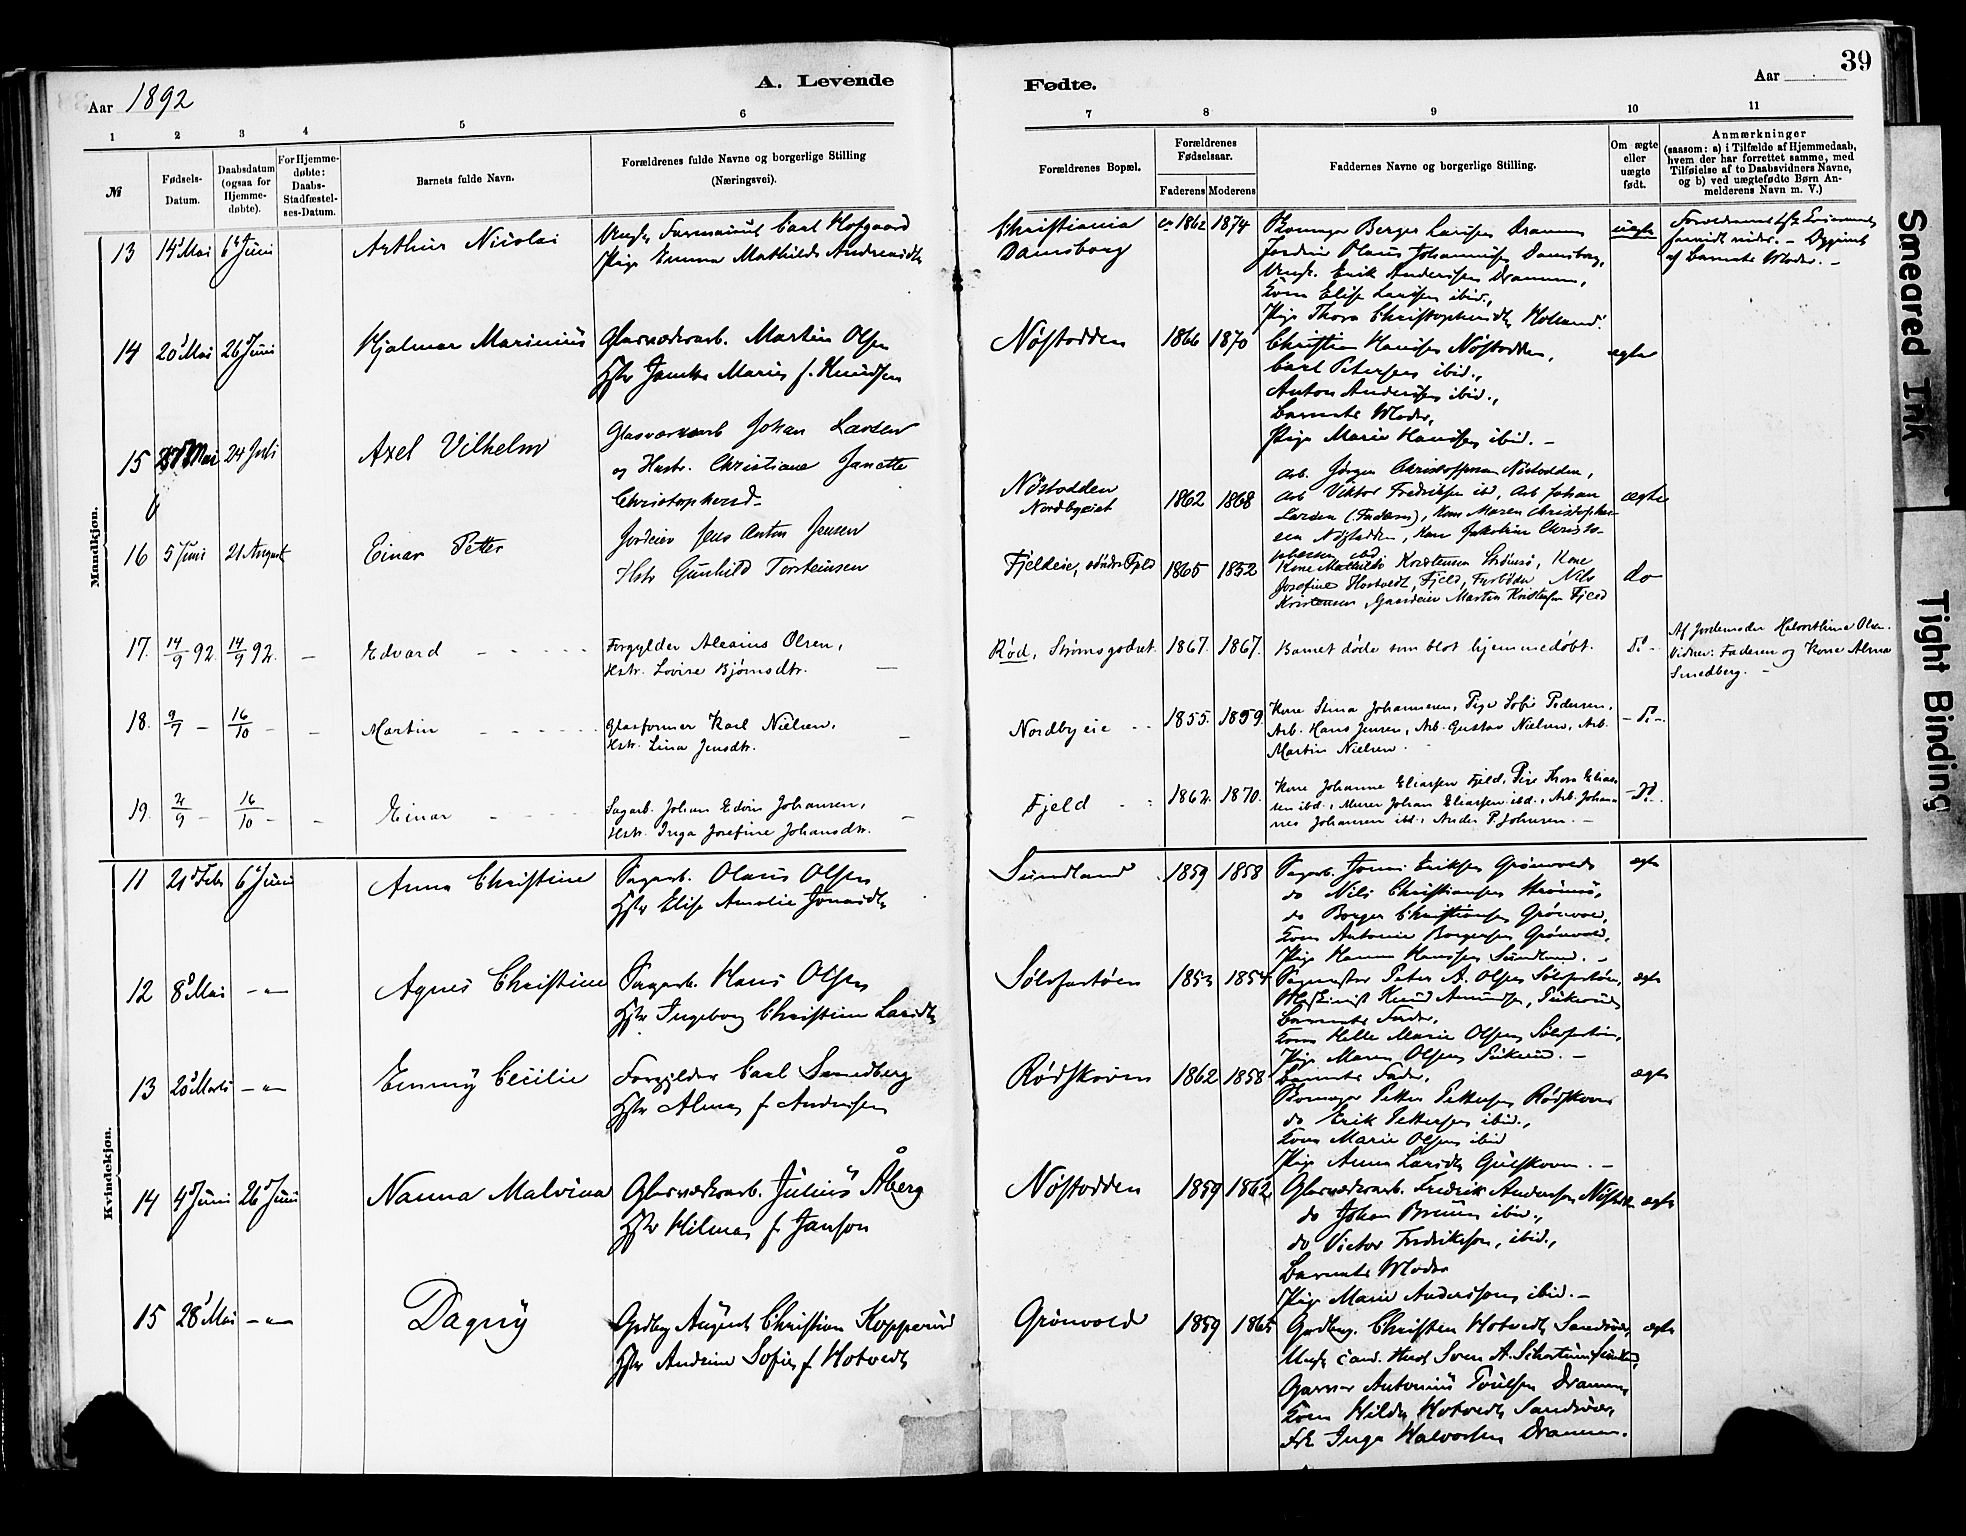 Aar 1892
A. Levende
1 2 3 4 5 6
№
Fødsels-
Datum.
Daabsdatum
(ogsaa for
Hjemme-
døbte).
For Hjemme-
døbte:
Daabs-
Stadfæstel-
ses-Datum.
Barnets fulde Navn.
Forældrenes fulde Navne og borgerlige Stilling
(Næringsvei).
Mandkjøn.
13 14 Mai 6 Juni Arthur Nicolai Carl Hofgaard
Pige Emma Mathilde Andreasdtr
14 20 Mai 26 Juni Hjalmar Marinius Glasværksarb. Martin Olsen
Hstr Janethe Marie f. Knudsen
15 Mai 24 Juli Axel Vilhelm Glasværksarb Johan Larsen
og Hustr. Christiane Janette
Christophersd.
16 5 Juni 21 August Einar Petter Jordeier Jens Anton Jensen
Hstr Gunhild Torsteinsen
17. 14/9 92. 14/9 92. - Edvard - - - - Forgylder Alexius Olsen,
Hstr. Lovise Bjørnsdtr. -
18. 9/7 - 16/10 - - Martin - - - - Glasformer Karl Nielsen,
Hstr. Lina Jensdtr. -
19. 2/9 - 16/10 - - Einar - - - - Sagarb. Johan Edvin Johansen,
Hstr. Inga Josefine Johansdtr. -
Kvindekjøn.
11 21 Feb 6 Juni Anna Christine Sagarb. Olaus Olsen
Hstr Elise Amalie Jonasdtr
12 8 Mai -"- Agnes Christine Sagarb. Hans Olsen
Hstr Ingeborg Christine Larsdtr
13 20 Marts -"- Emmy Cecilie Forgylder Carl Smedberg
Hstr Alma f. Andersen
14 4 Juni 26 Juni Nanna Malvina Glasværksarb. Julius Åberg
Hstr Hilma f. Janson
15 28 Mai -"- Dagny Grdbrg August Christian Kopperud
Hstr Andrine Sofie f. Hotvedt
Fødte.
Aar
39
7 8 9 10 11
Forældrenes Bopæl.
Forældrenes
Fødselsaar.
Faderens Moderens
Faddernes Navne og borgerlige Stilling.
Om ægte
eller
uægte
født.
Anmærkninger
(saasom: a) i Tilfælde af Hjemmedaab,
hvem der har forrettet samme, med
Tilføielse af to Daabsvidners Navne,
og b) ved uægtefødte Børn An-
melderens Navn m. V.)
Christiania ca 1862 1874 Berger Larsen Drammen uægte Forældrenes
Damsborg Olaus Johannesen Damsborg,
Ungk. Erik Andersen Drammen,
Kone Elise Larsen ibid.,
Pige Thora Christophersdtr Holland.
af Barnets Moder. -
Nøstodden 1866 1870 Christian Hansen Nøstodden, ægte
Carl Petersen ibid.,
Anton Andersen ibid.,
Barnets Moder,
Pige Marie Hansen ibid. -
Nøstodden
Nordbyeiet 1862 1868 Arb. Jørgen Christoffersen Nøstodden,
Arb Viktor Fredriksen ibd, Arb Johan ægte
Larsen (Faderen), Kone Maren Christopher-
sen Nøstodden, Kone Jakobine Christo-
phersen ibd
Fjeldeie, søndre Fjeld 1865 1852 Kone Mathilde Kristensen Strømsø, Kone do
Josefine Hostvedt, Fjeld, Nils
Kristensen, Gaardeier Martin Kristensen Fjeld
Rød, Strømsgodset. 1867. 1867. Barnet døde som blot hjemmedøbt. Af Jordemoder Olsen.
Vidner: Faderen og Kone Alma
Smedberg. -
Nordbyeie - - 1855. 1859. Kone Stina Johannesen, Pige Sofie Pedersen,
Arb. Hans Jensen, Arb. Gustav Nielsen, Arb.
Martin Nielsen.
Fjeld - - 1862. 1870. Kone Johanne Eliassen Fjeld, Pige Thora Elias-
sen ibd., Murer Johan Eliassen ibd., Arb. Johan-
nes Johansen ibd., Anders P. Johnsen. -
Sundland 1859 1858 Sagarb. Eriksen Grønvold ægte
do Nils Christiansen Strømsø,
do Borger Christiansen Grønvold,
Kone Antonie Borgersen Grønvold,
Pige Hanna Hansen Sundland. -
Sølvfastøen 1853 1854 Sagmester Peter A. Olsen Sølvfastøen, ægte
Maskinist Knud Amundsen,
Barnets Fader,
Kone Helle Marie Olsen Sølvfastøen,
Pige Maren Olsen
Rødskoven 1862 1858 Barnets Fader, ægte
Petter Pettersen Rødskoven
do Erik Pettersen ibid.,
Kone Marie Olsen ibid
Pige Anna Larsdtr Gulskoven. -
Nøstodden 1859 1862 Glasværksarb. Fredrik Andersson Nøstodden ægte
do Johan Bruun ibid.,
do Victor Fredriksson, ibid.,
Barnets Moder
Pige Marie Andersson, ibid. -
Grønvold 1859 1865 Grdbrg. Christen Hotvedt Sandsvær, ægte
Ungk cand. Sven A. Schartum Sundland,
Garver Antonius Poulsen Drammen,
Kone Hilda Hotvedt Sandsvær,
Frk Inga Halvorsen Drammen.
Smeared Ink
Tight Binding